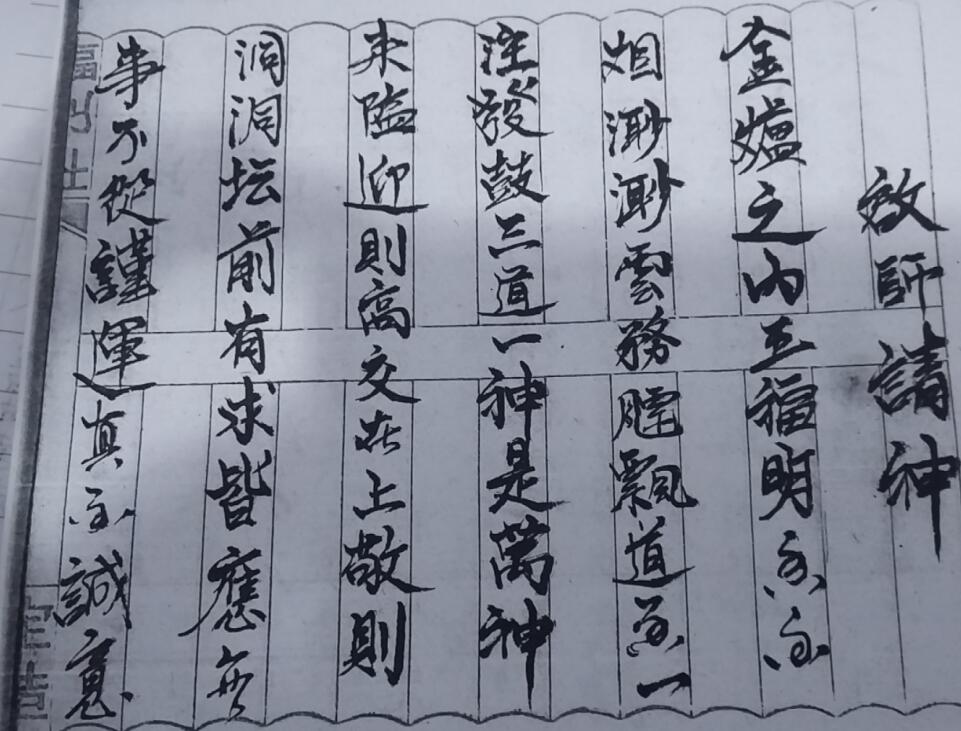 啟師請神
金爐之内五福明香香
烟渺渺雲務騰飄道香一
注發鼓三道一神是萬神
来臨迎則高交在上敬則
洞洞坛前有求皆應無
事不從謹運真香誠意